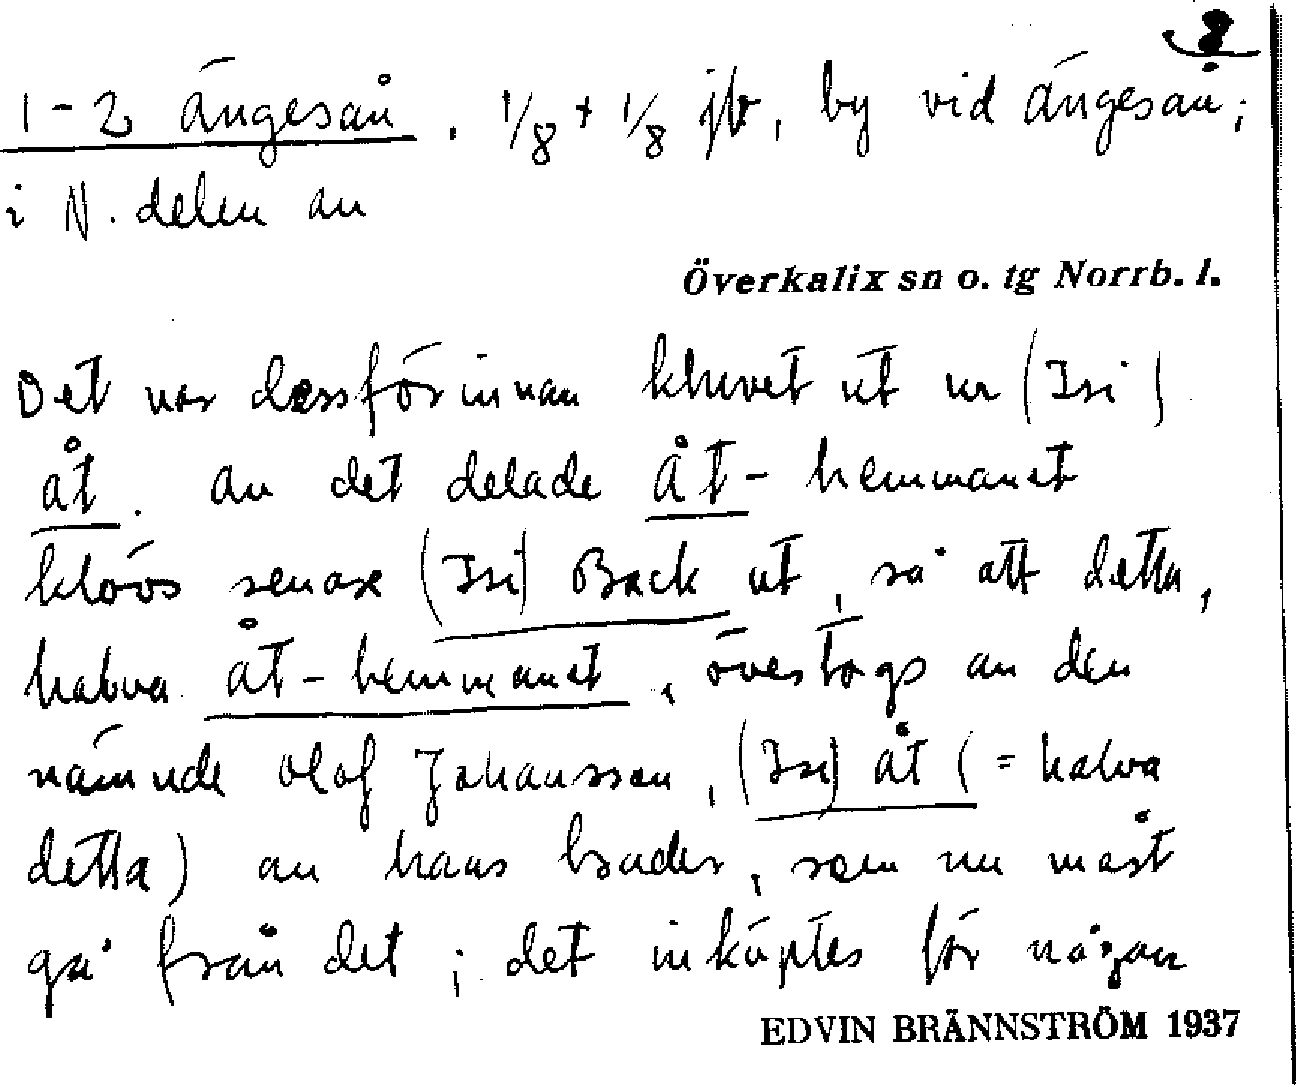 8
1-2 Ängesån. 1/8 + 1/8 jbr, by vid Ängesån;
i N. delen av
Överkalix sn o. tg Norrb. l.
Det var dessförinnan kluvet ut ur (Isi)
Åt. Av det delade Åt-hemmanet
klövs senare (Isi) Back ut, så att detta,
halva Åt-hemmanet, övertogs av den
nämnde Olof Johansson, (Isi) Åt (= halva
detta) av hans broder, som nu måst
gå från det; det inköptes för någon
EDVIN BRÄNNSTRÖM 1937